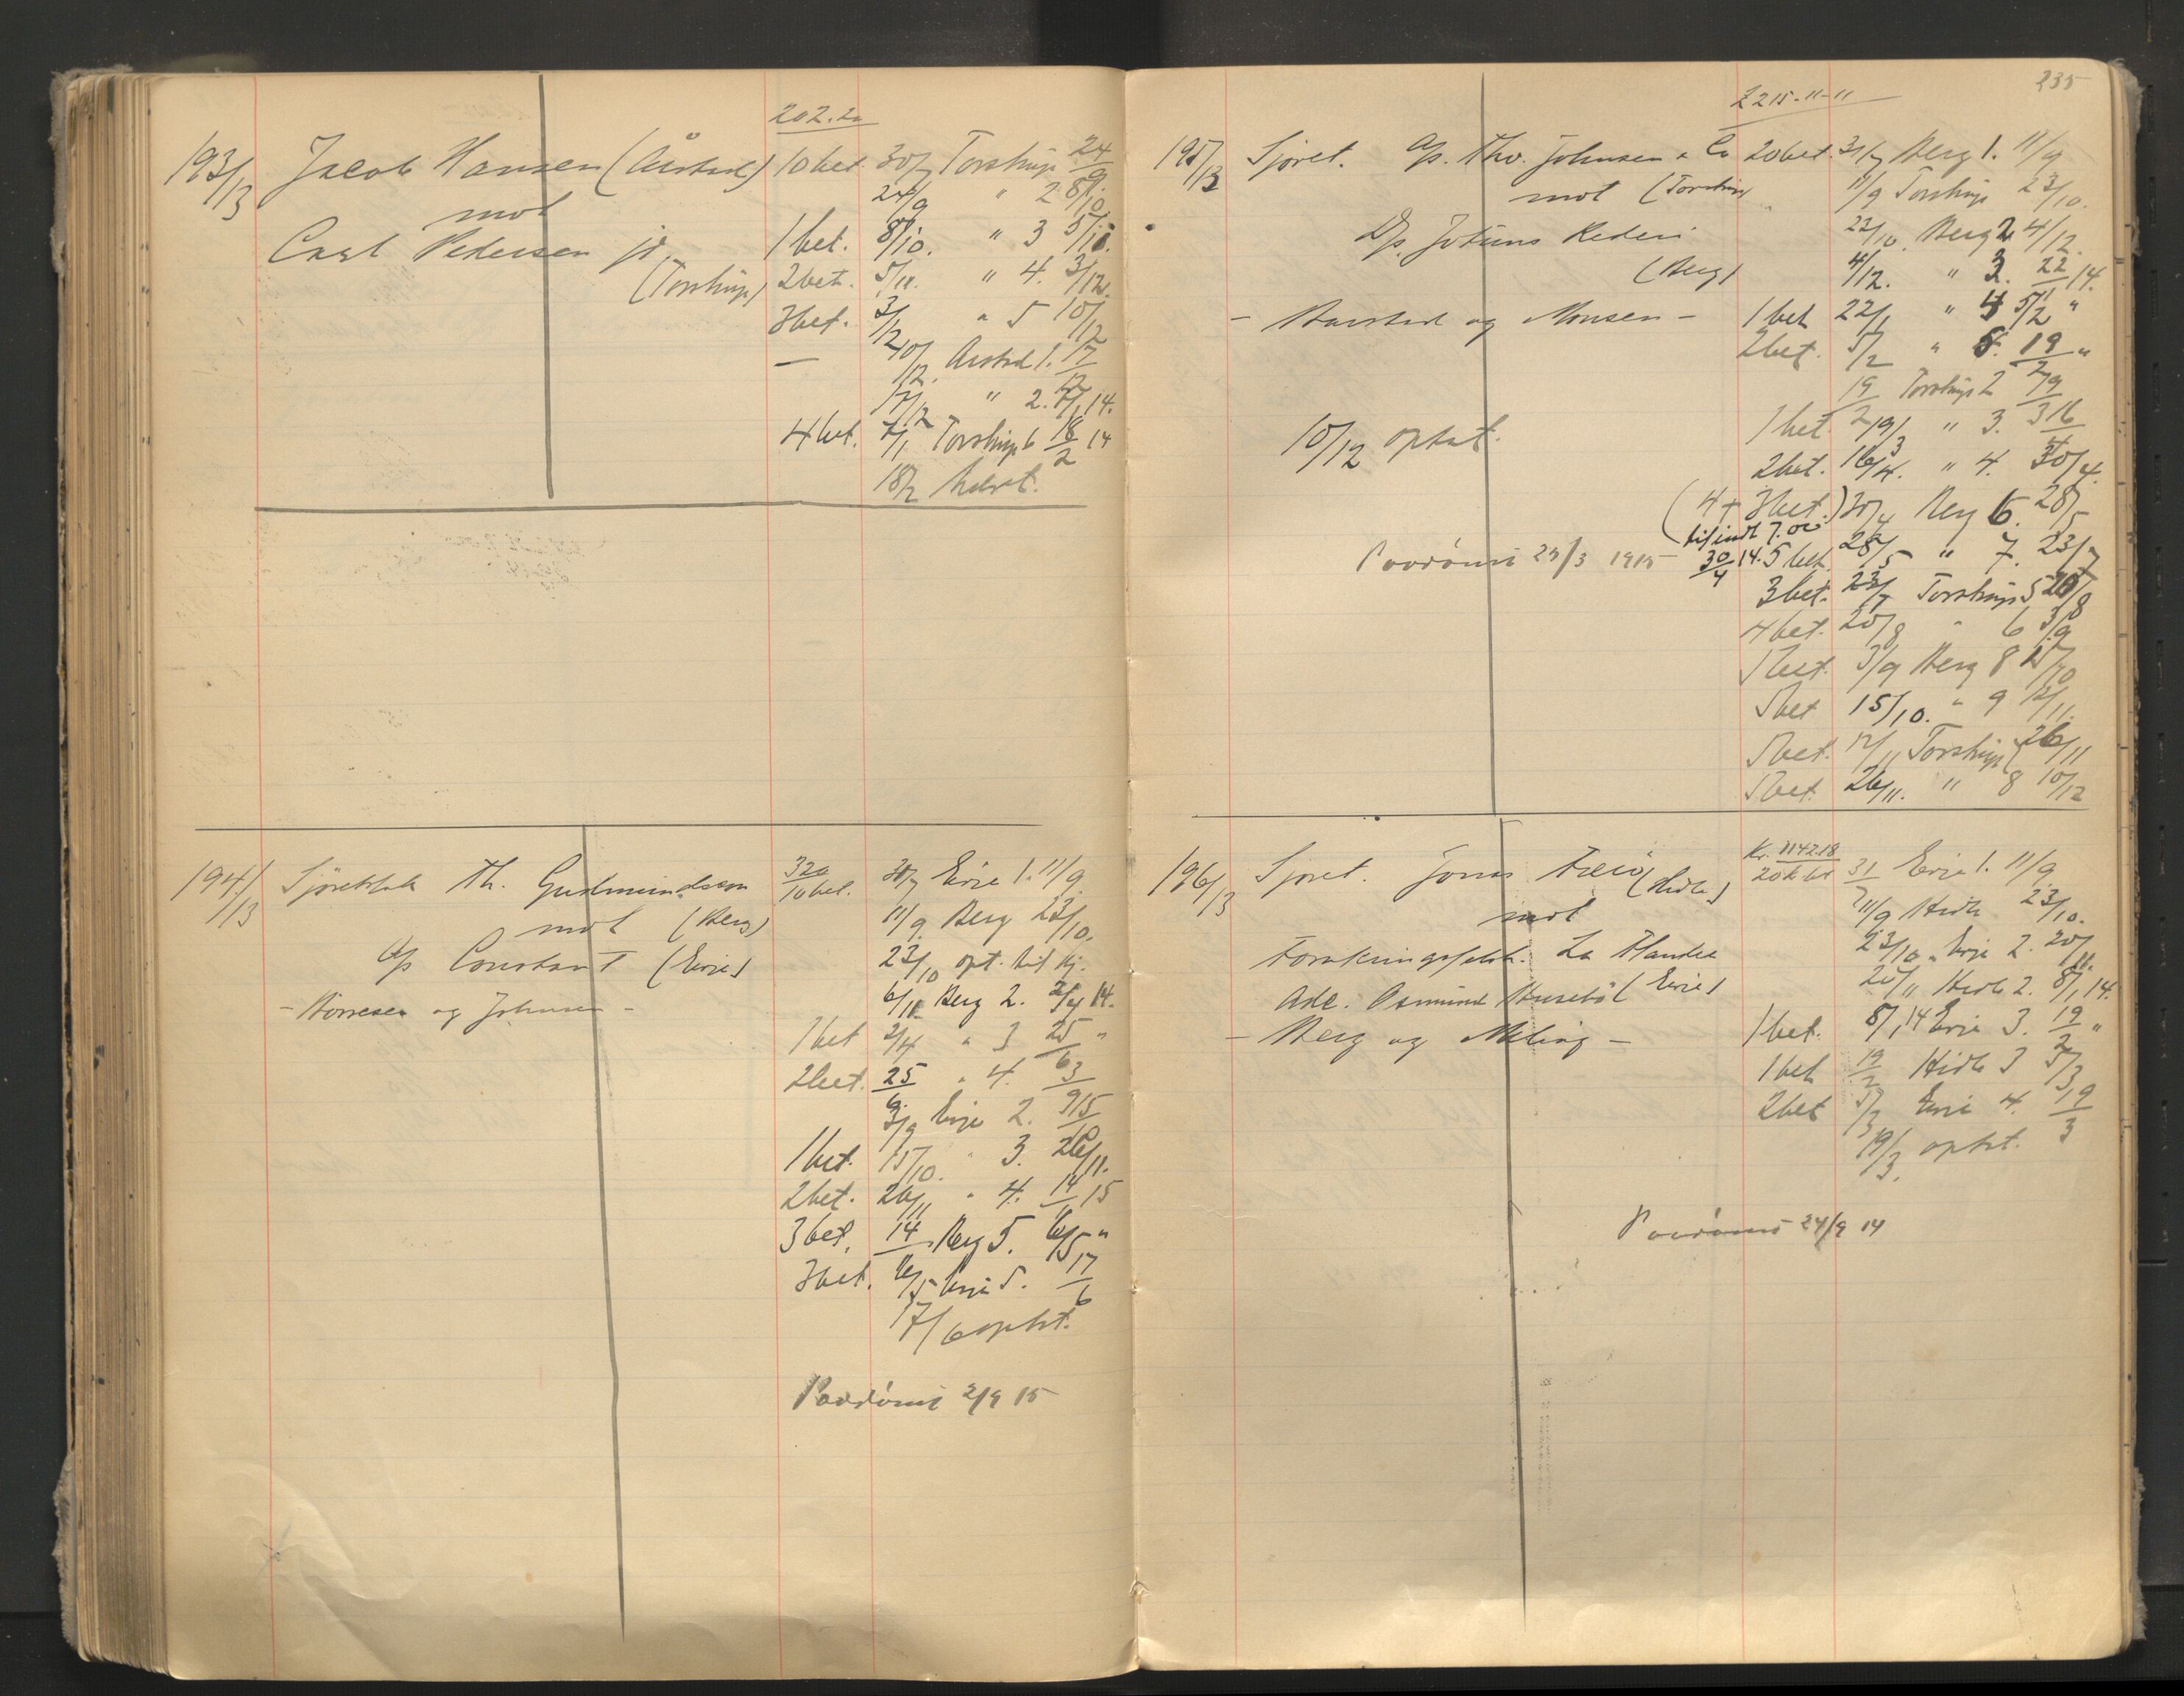 202.20
193/13 Jacob Hansen (Årstad) 10 bet. 30/7 Torstrup 24/9
mot 24/9 " 2 8/10
Carl Pedersen jr. 1 bet. 8/10. " 3 5/11.
(Torstrup) 2 bet. 5/11. " 4. 3/12.
3 bet. 3/12 " 5 10/12
— 10/12. Årstad 1. 17/12
17/12 " 2. 7/1 14.
4 bet. 7/1 Torstrup 6 18/2 14
18/2 hævet.
194/13 Sjöretssak Th. Gudmundsen 320 10 bet. 30/7 Eie 1. 11/9.
mot (Berg) 11/9. Berg 23/10.
A/s Constant (Eie) 23/10 opt. til kj.
- og Johnsen - 6/11. Berg 2. 2/4 14.
1 bet 2/4 " 3 25/6 "
2 bet. 25/6. " 4. 3/9
3/9 Eie 2. 15/10
1 bet. 15/10. " 3. 26/11.
2 bet. 26/11 " 4. 14/1 15
3 bet. 14/1 Berg 5. 6/5 "
3 bet. 6/5 Eie 5. 17/6
17/6 optat.
Paadömt 2/9 15
235
£ 215-11-11
195/13 Sjöret. A/s. Thv. Johnsen & Co 20 bet. 31/7 Berg 1. 11/9
mot (Torstrup) 11/9 Torstrup 23/10.
D/s. Jotuns Rederi 22/10. Berg 2 4/12.
(Berg) 4/12. " 3. 22/1 14.
- og Monsen - 1 bet 22/1 " 4 5/2 "
2 bet. 5/2 " 5. 19/2 "
19/2 Torstrup 2 19/3
10/12 optat. 1 bet. 19/3 " 3. 16/4
2 bet. 16/4. " 4. 30/4.
(4 + 3 bet.) 30/4 Berg 6. 28/5
Paadömt 25/3 1915 30/4 14. 5 bet. 28/5 " 7. 23/7
3 bet. 23/7 Torstrup 5 20/8
4 bet. 20/8 " 6 3/9
5 bet. 3/9 Berg 8 15/10
5 bet 15/10. " 9 12/11.
5 bet. 12/11 Torstrup 7 26/11
5 bet. 26/11. " 8 10/12
196/13 Sjöret. Jonas (Hidle) Kr. 1142.18 20 bet 31/7 Eie 1. 11/9
mot 11/9 Hidle 23/10.
La Flandre 23/10. Eie 2. 20/11.
Adv. Osmund (Eie) 20/11 Hidle 2. 8/1 14.
- Berg og Meling - 1 bet. 8/1 14 Eie 3. 19/2 "
1 bet 19/2 Hidle 3 5/3
2 bet 5/3 Eie 4. 19/3
19/3. optat.
Paadömt 24/9 14